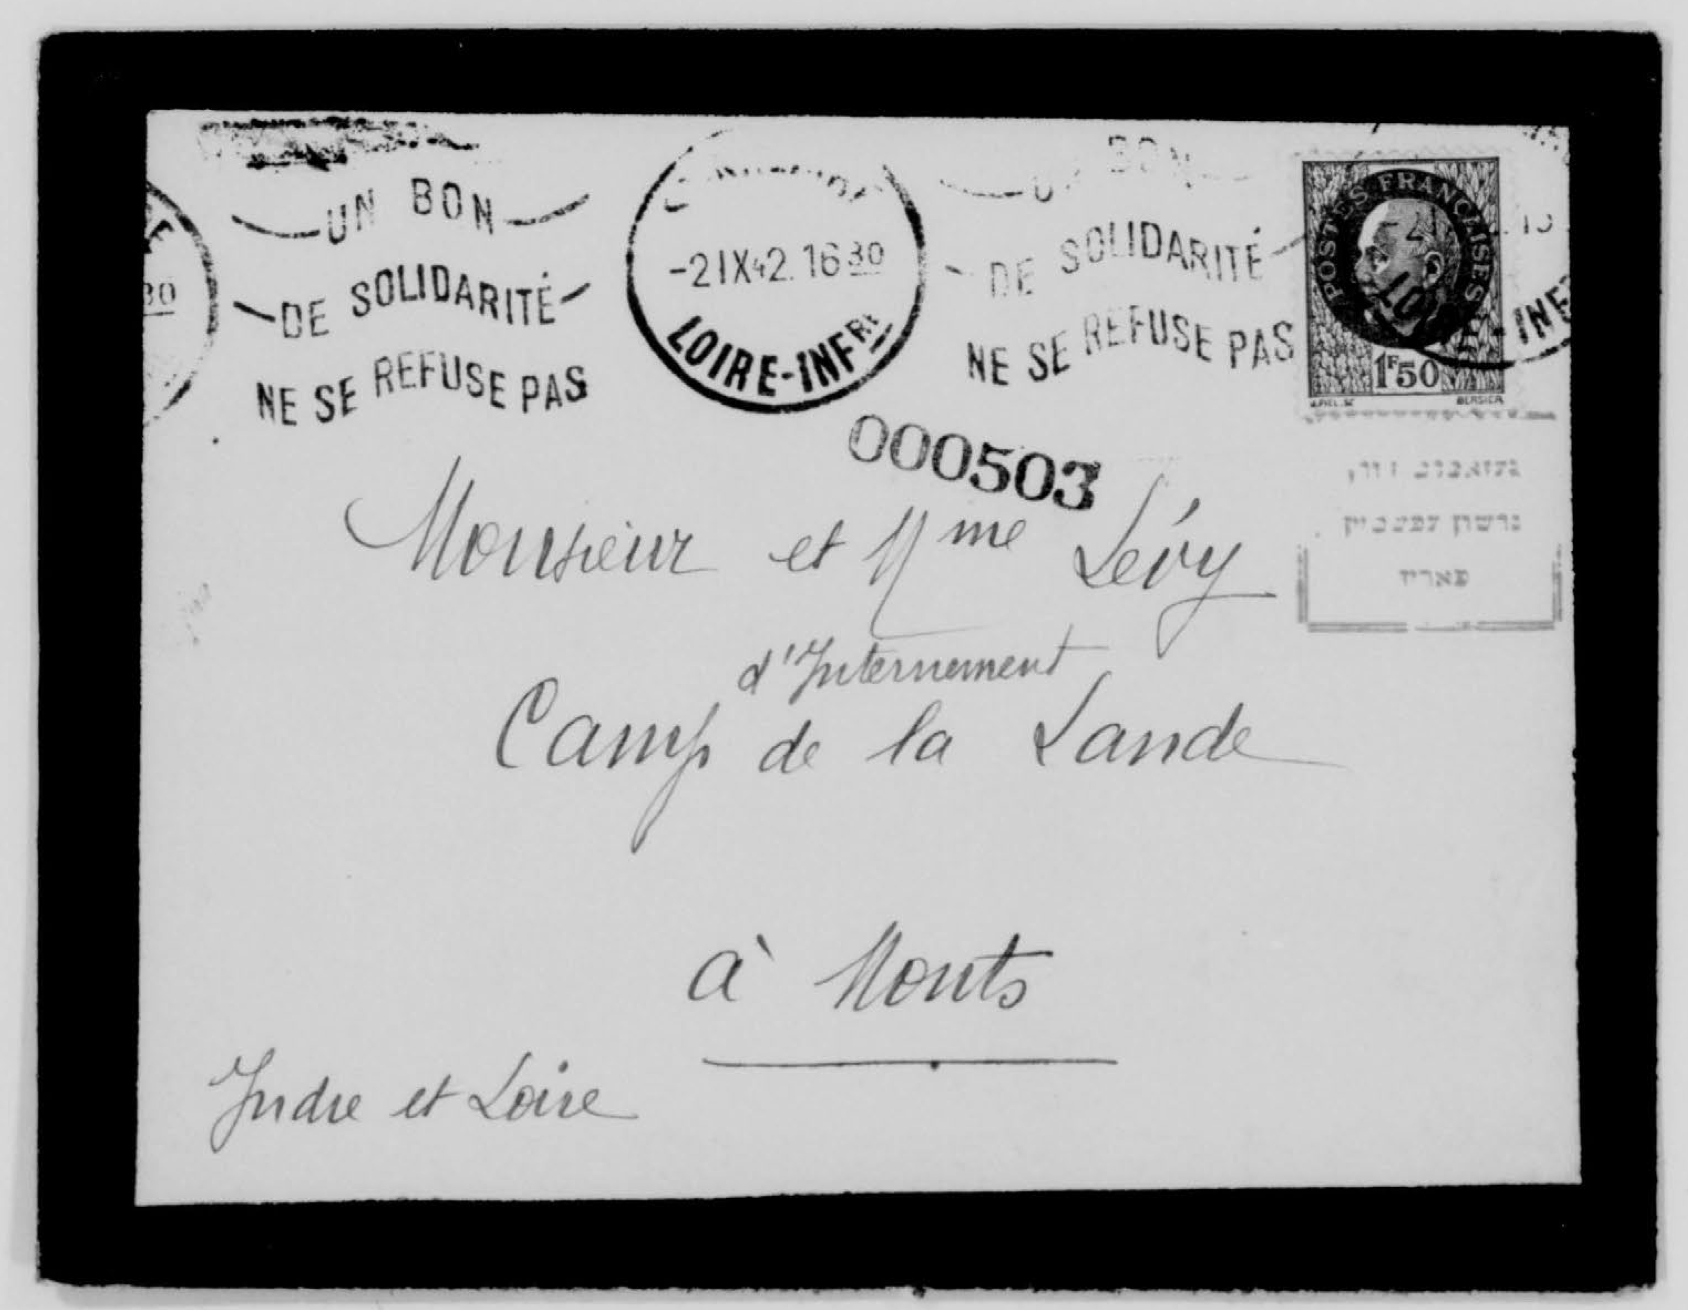 UN BON
DE SOLIDARITÉ
NE SE REFUSE PAS
30
-2 IX 42. 16 30
LOIRE-INFRE
UN BON
DE SOLIDARITÉ
NE SE REFUSE PAS
POSTES FRANÇAISES
1F50
BERSIER
000503
Monsieur et Mme Lévy
d'Internement
Camp de la Lande
à Monts
Indre et Loire
גרשון עפשטיין
פאריז